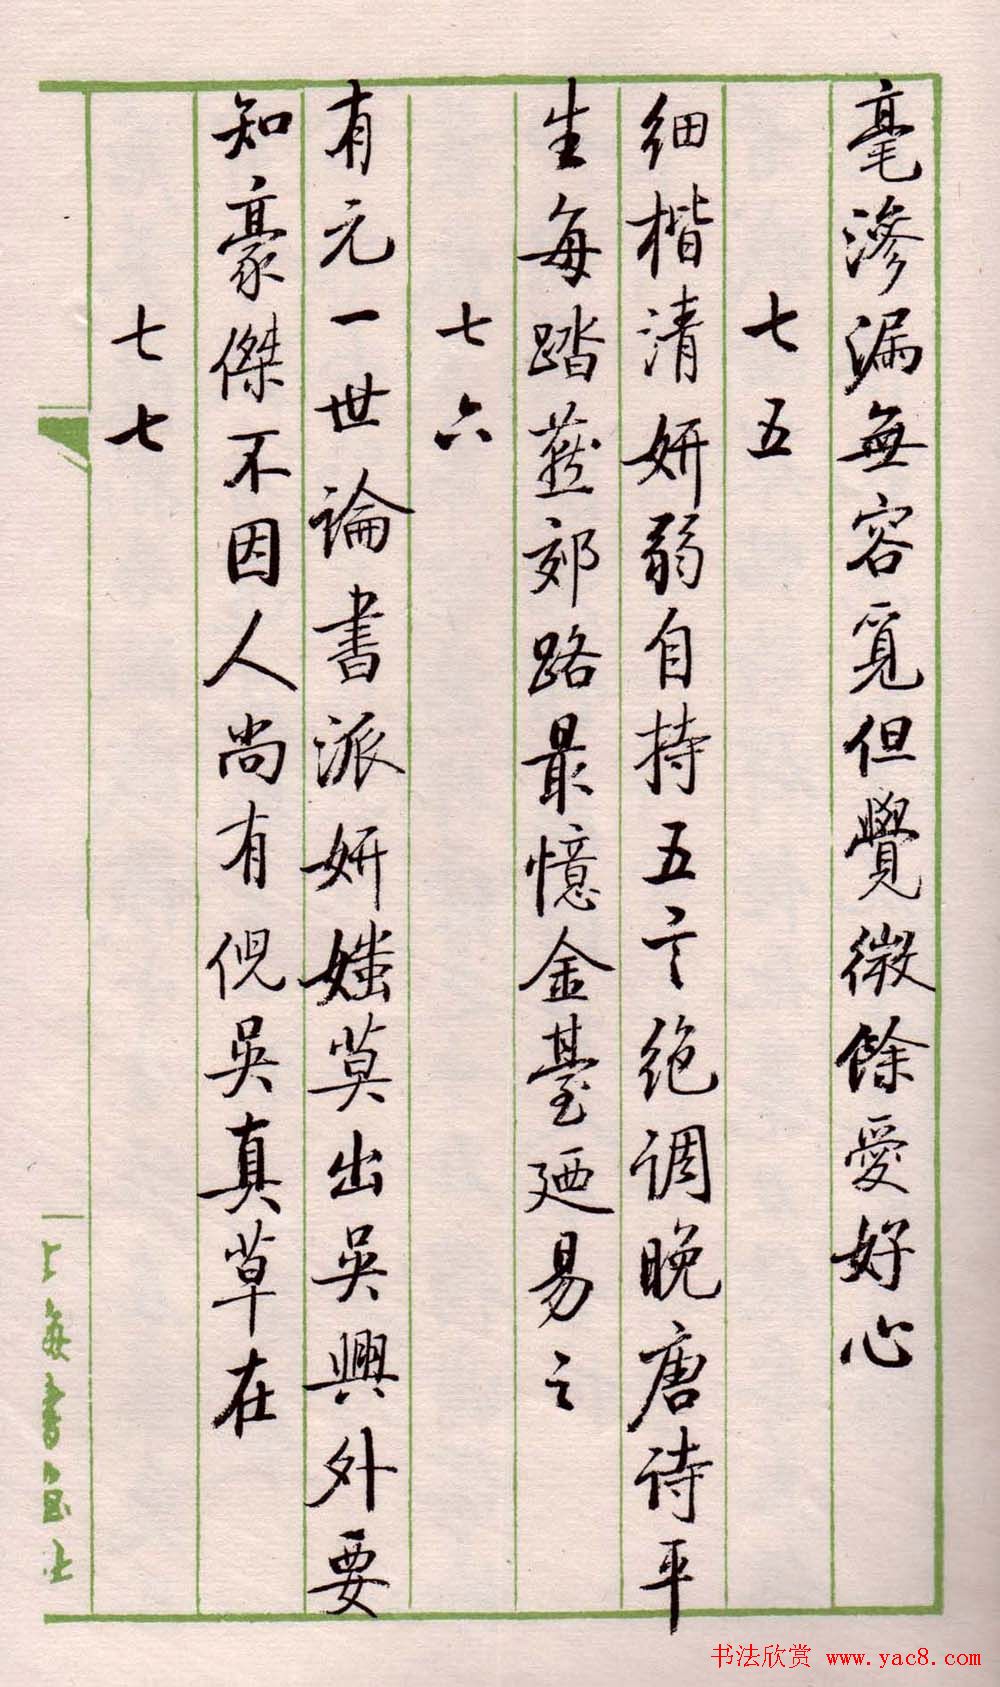 毫滲漏無容覓但覺微餘愛好心
七五
細楷清妍弱自持五言绝調晚唐詩平
生每踏燕郊路最憶金臺廼易之
七六
有元一世論書派妍媸莫出吳興外要
知豪傑不因人尚有倪吳真草在
七七
上海書画社
书法欣赏 www.yac8.com